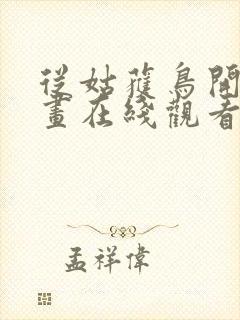 從姑獲鳥開
畫在綫觀看
孟祥偉